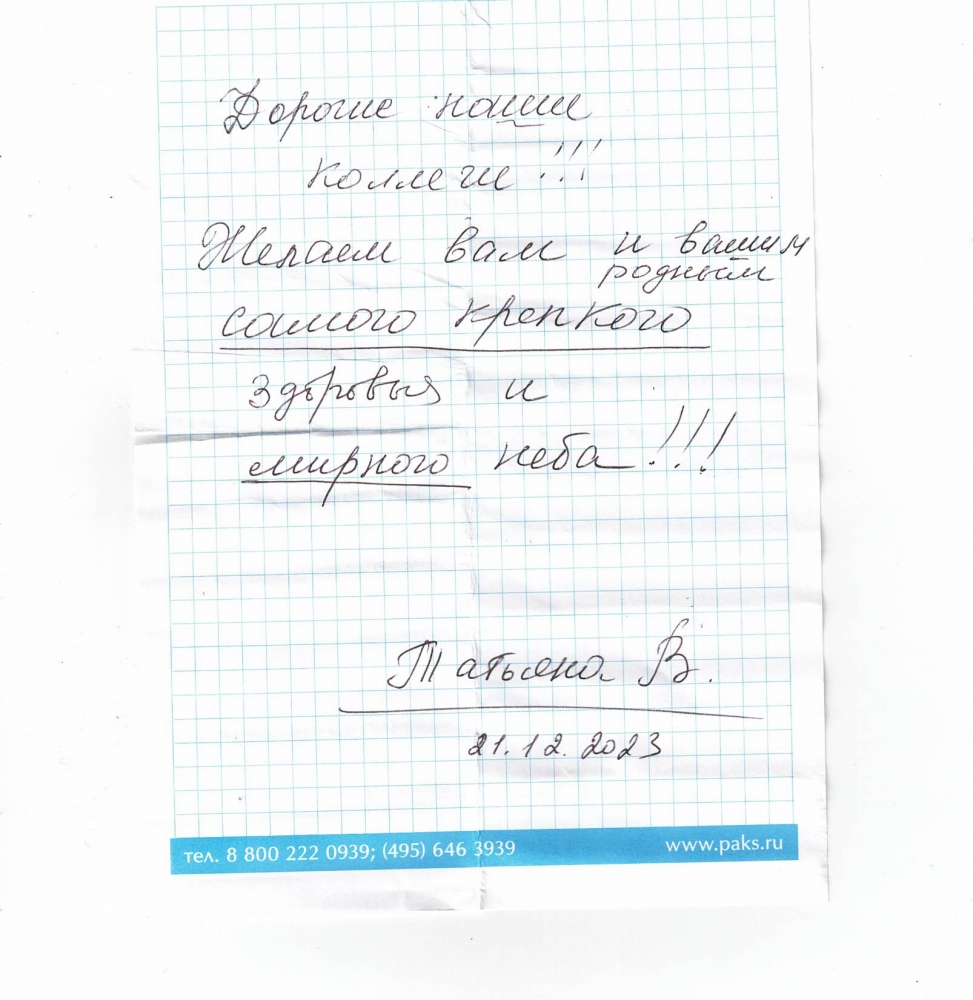 Дорогие наши
коллеги!!!
Желаем вам и вашим
родным
самого крепкого
здоровья и
мирного неба!!!
Татьяна В.
21.12.2023
тел. 8 800 222 0939; (495) 646 3939 www.paks.ru